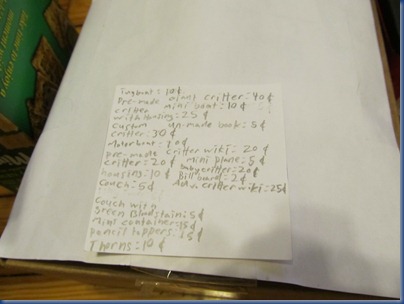 Tugboat: 10¢
Pre-made giant critter: 40¢
critter mini boat: 10¢
with housing: 25¢
Custom un-made book: 5¢
critter: 30¢
Motor boat: 10¢
pre-made critter wiki: 20¢
critter: 20¢ mini plane: 5¢
housing: 10¢ baby critter: 20¢
Couch: 5¢ Bill board: 2¢
Adv. critter wiki: 25¢
Couch with
green Blood stain: 5¢
Mini container: 15¢
pencil toppers: 15¢
Thorns: 10¢